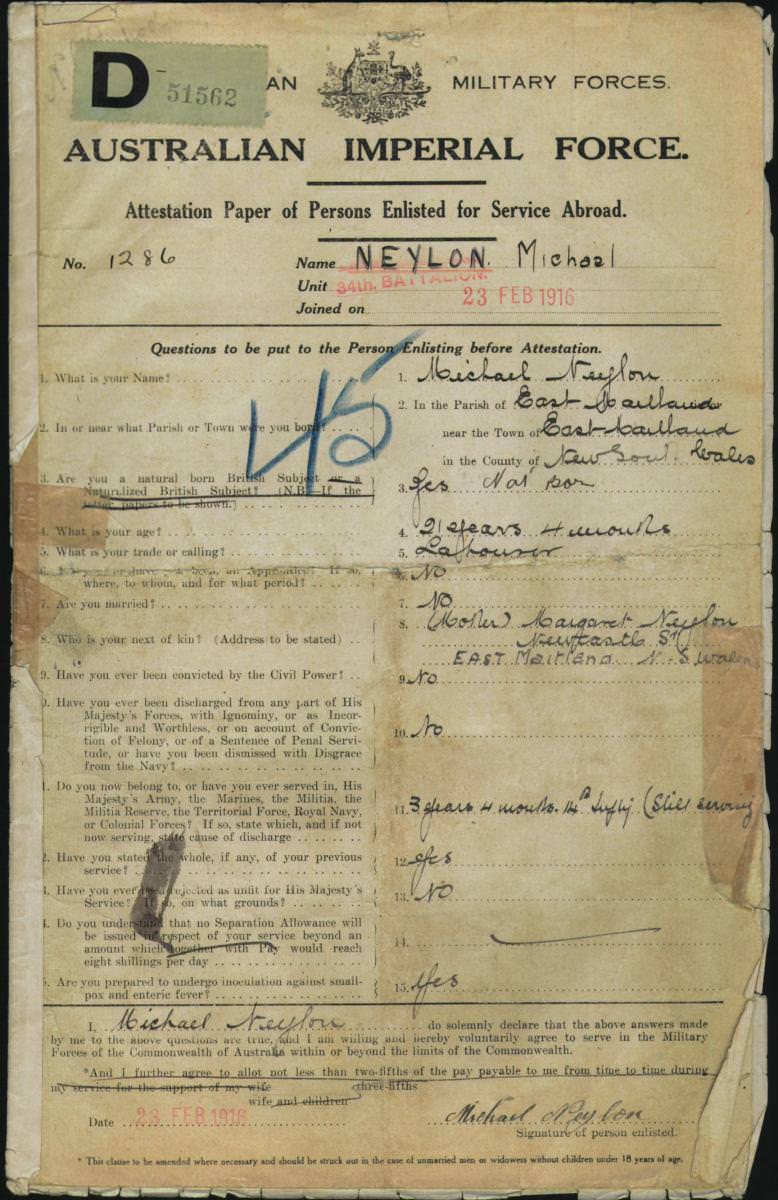 D 51562
AN MILITARY FORCES.
AUSTRALIAN IMPERIAL FORCE.
Attestation Paper of Persons Enlisted for Service Abroad.
No. 1286 Name NEYLON. Michael
Unit 34th. BATTALION.
Joined on 23 FEB 1916
Questions to be put to the Person Enlisting before Attestation.
45
1. What is your Name? 1. Michael Neylon
2. In or near what Parish or Town were you born? 2. In the Parish of East Maitland
near the Town of East Maitland
in the County of New Sout. Wales
3. Are you a natural born British Subject or a
Naturalized British Subject? (N.B.—If the
letter papers to be shown.) 3. Yes Nat bor
4. What is your age? 4. 21 years 4 months
5. What is your trade or calling? 5. Labourer
6. have you been, an Apprentice? If so,
where, to whom, and for what period? 6. No
7. Are you married? 7. No
8. Who is your next of kin? (Address to be stated) 8. (Mother) Margaret Neylon
Newcastle St
EAST Maitland N. S Wales
9. Have you ever been convicted by the Civil Power? 9. No
0. Have you ever been discharged from any part of His
Majesty's Forces, with Ignominy, or as Incor-
rigible and Worthless, or on account of Convic-
tion of Felony, or of a Sentence of Penal Servi-
tude, or have you been dismissed with Disgrace
from the Navy? 10. No
1. Do you now belong to, or have you ever served in, His
Majesty's Army, the Marines, the Militia, the
Militia Reserve, the Territorial Force, Royal Navy,
or Colonial Forces? If so, state which, and if not
now serving, state cause of discharge 11. 3 years 4 months. (Still serving
2. Have you stated the whole, if any, of your previous
service? 12. Yes
3. Have you ever been rejected as unfit for His Majesty's
Service? If so, on what grounds? 13. No
4. Do you understand that no Separation Allowance will
be issued in respect of your service beyond an
amount which together with Pay would reach
eight shillings per day 14.
5. Are you prepared to undergo inoculation against small-
pox and enteric fever? 15. Yes
I, Michael Neylon do solemnly declare that the above answers made
by me to the above questions are true, and I am willing and hereby voluntarily agree to serve in the Military
Forces of the Commonwealth of Australia within or beyond the limits of the Commonwealth.
*And I further agree to allot not less than two-fifths of the pay payable to me from time to time during
three-fifths
my service for the support of my wife
wife and children
Date 23 FEB 1916 Michael Neylon
Signature of person enlisted.
* This clause to be amended where necessary and should be struck out in the case of unmarried men or widowers without children under 18 years of age.